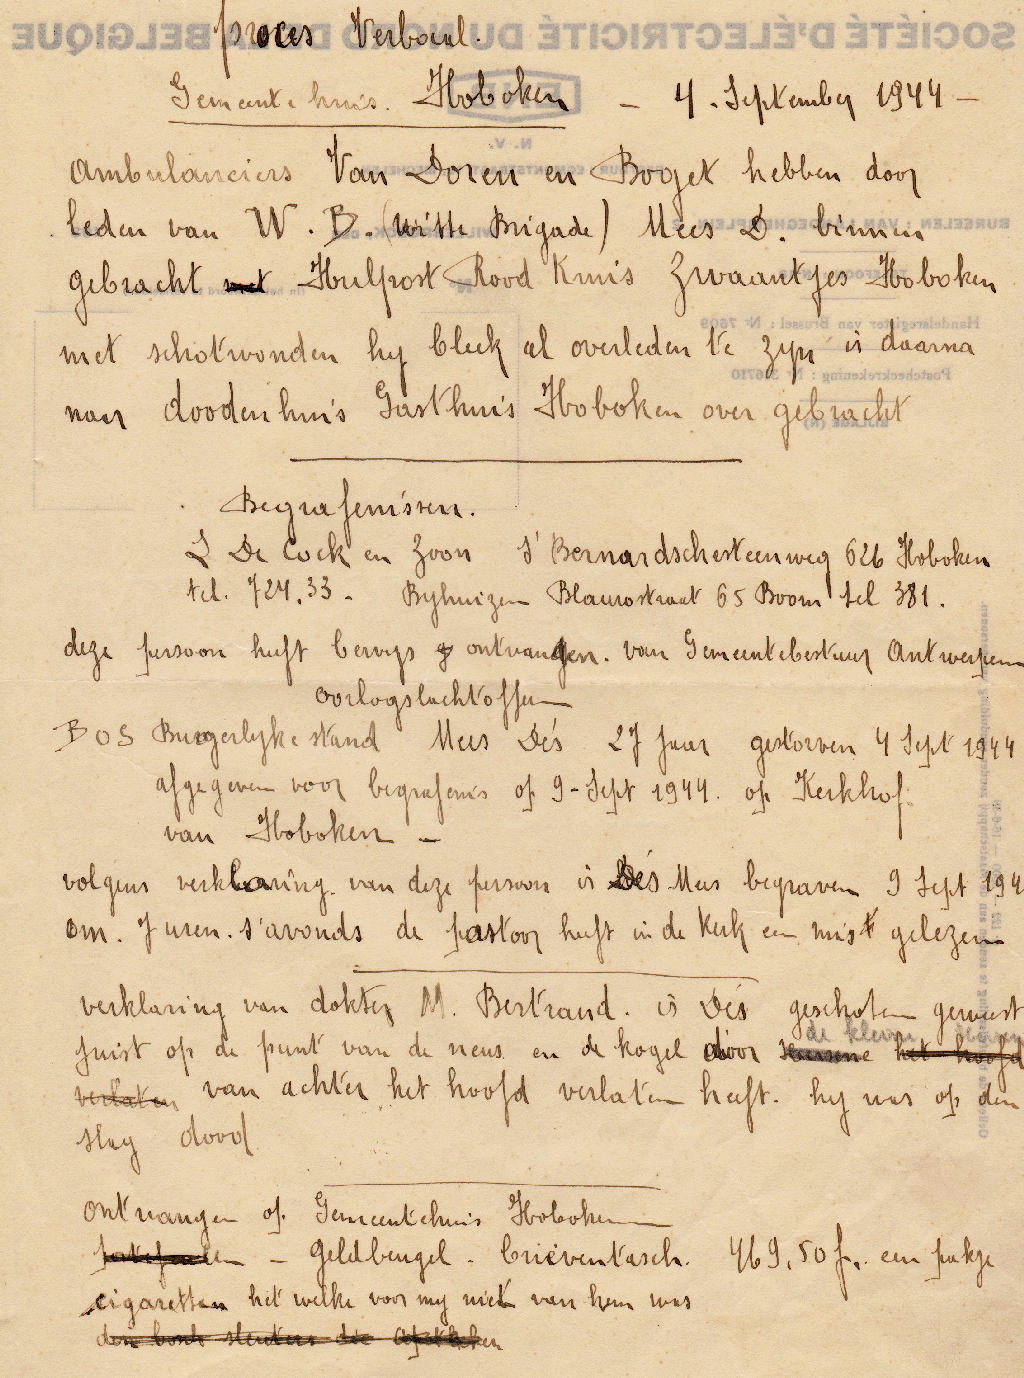 proces Verbaal.
Gemeentehuis. Hoboken - 4. September 1944 -
Ambulanciers Van Doren en Boget hebben door
leden van W. B. (Witte Brigade) Mees D. binnen
gebracht met Hulpost Rood Kruis Zwaantjes Hoboken
met schotwonden hy bleek al overleden te zyn is daarna
naar doodenhuis Gasthuis Hoboken over gebracht
Begrafenissen.
L De Cock en Zoon S' Bernardschesteenweg 626 Hoboken
tel. 724.33 - Byhuizen Blauwstraat 65 Boom tel 381.
deze persoon heeft bewys ontvangen. van Gemeentebestuur Antwerpen
oorlogslachtoffer
BOS Burgerlyke stand Mees Dés 27 Jaar gestorven 4 Sept 1944
afgegeven voor begrafenis op 9-Sept 1944. op Kerkhof
van Hoboken -
volgens verklaring van deze persoon is Dés Mees begraven 9 Sept 194
om. 7 uren. s'avonds de pastoor heeft in de Kerk een mist gelezen
verklaring van dokter M. Bertrand. is Dés geschoten geweest
de kleine
juist op de punt van de neus en de kogel door het hoofd
verlaten van achter het hoofd verlaten heeft. hy was op den
slag dood
ontvangen op Gemeentehuis Hoboken
- Geldbeugel - brieventasch. 469,50 f. een pakje
cigaretten het welke voor my niet van hem was
den bank sleuters die
SOCIÉTÉ D'ÉLECTRICITÉ DU NORD DE LA BELGIQUE
N. V.
Handelsregister van Brussel : Nr 7609
Postcheckrekening : Nr 346710
BIJLAGE (N)